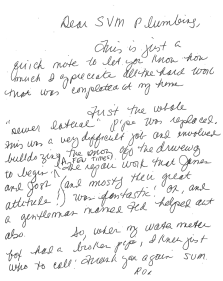 Dear SVM Plumbing,
This is just a
quick note to let you know how
much I appreciate all the hard work
that was completed at my home
Just the whole
"sewer lateral" pipe was replaced.
This was a very difficult job and involved
bulldozing the driveway
(A FEW TIMES)
to begin. The repair work that James
and Jose (and mostly their great
attitude!) was fantastic! Oh, and
a gentleman named Ted helped out
also.
So, when my water meter
box had a broken pipe, I knew just
who to call. Thank you again SVM.